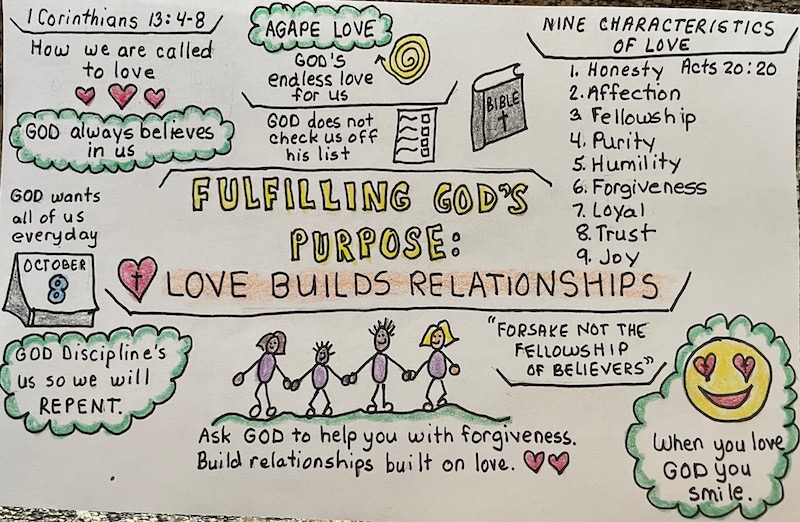 1 Corinthians 13:4-8
How we are called
to love
GOD always believes
in us
GOD wants
all of us
everyday
OCTOBER
8
GOD Discipline's
us so we will
REPENT.
AGAPE LOVE
GOD'S
endless love
for us
GOD does not
check us off
his list
BIBLE
NINE CHARACTERISTICS
OF LOVE
1. Honesty Acts 20:20
2. Affection
3 Fellowship
4. Purity
5. Humility
6. Forgiveness
7. Loyal
8. Trust
9. Joy
FULFILLING GOD'S
PURPOSE:
LOVE BUILDS RELATIONSHIPS
"FORSAKE NOT THE
FELLOWSHIP
OF BELIEVERS"
Ask GOD to help you with forgiveness.
Build relationships built on love.
When you love
GOD you
smile.